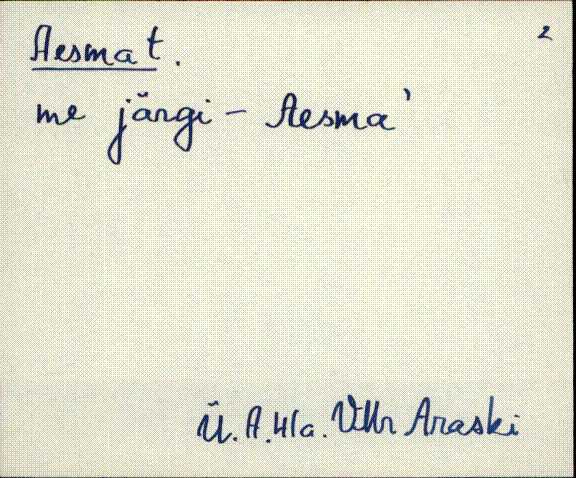 2
Aesma t.
me järgi - Aesma'
Ü. A. 41a. VMr Araski